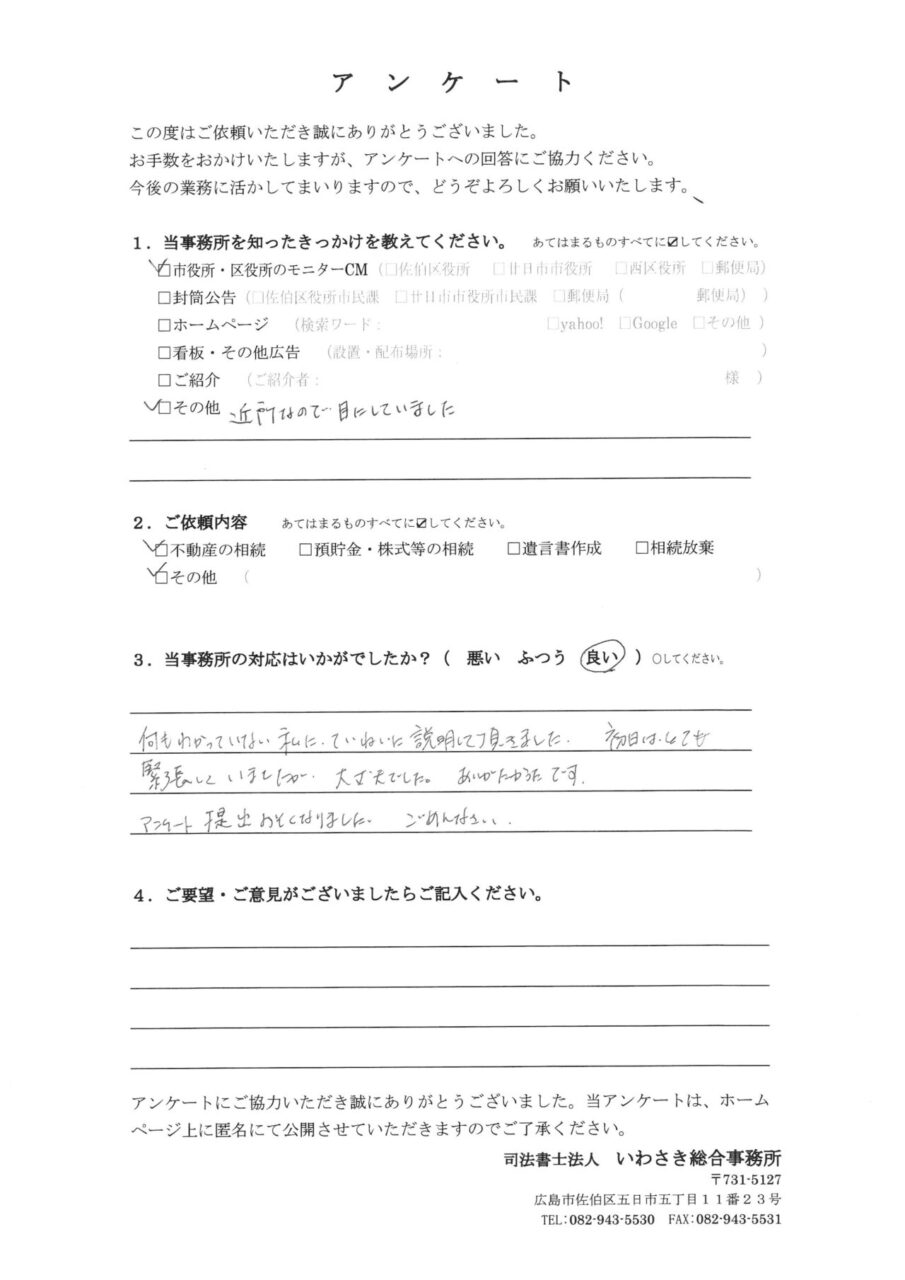 アンケート
この度はご依頼いただき誠にありがとうございました。
お手数をおかけいたしますが、アンケートへの回答にご協力ください。
今後の業務に活かしてまいりますので、どうぞよろしくお願いいたします。
1．当事務所を知ったきっかけを教えてください。 あてはまるものすべてに☑してください。
☑市役所・区役所のモニターCM（□佐伯区役所 □廿日市市役所 □西区役所 □郵便局）
□封筒公告（□佐伯区役所市民課 □廿日市市役所市民課 □郵便局（ 郵便局））
□ホームページ （検索ワード： □yahoo! □Google □その他）
□看板・その他広告 （設置・配布場所： ）
□ご紹介 （ご紹介者： 様 ）
☑その他 近所なので目にしていました
2．ご依頼内容 あてはまるものすべてに☑してください。
☑不動産の相続 □預貯金・株式等の相続 □遺言書作成 □相続放棄
☑その他 （ ）
3．当事務所の対応はいかがでしたか？（ 悪い ふつう 良い ）○してください。
何もわかっていない私に、ていねいに説明して頂きました。 初日は、とても
緊張していましたが、大丈夫でした。 ありがたかったです。
アンケート提出おそくなりました。 ごめんなさい。
4．ご要望・ご意見がございましたらご記入ください。
アンケートにご協力いただき誠にありがとうございました。当アンケートは、ホーム
ページ上に匿名にて公開させていただきますのでご了承ください。
司法書士法人 いわさき総合事務所
〒731-5127
広島市佐伯区五日市五丁目１１番２３号
TEL:082-943-5530 FAX:082-943-5531